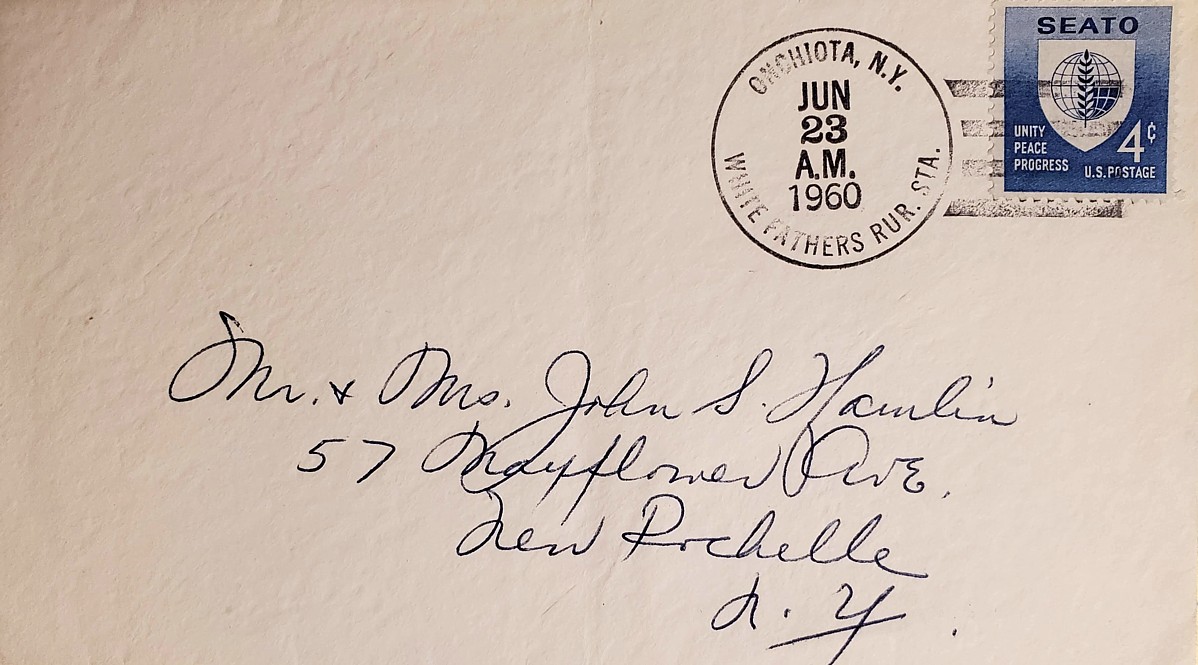 ONCHIOTA, N.Y.
JUN
23
A.M.
1960
WHITE FATHERS RUR. STA.
SEATO
UNITY
PEACE
PROGRESS
4¢
U.S. POSTAGE
Mr. & Mrs. John S. Hamlin
57 Mayflower Ave.
New Rochelle
N. Y.